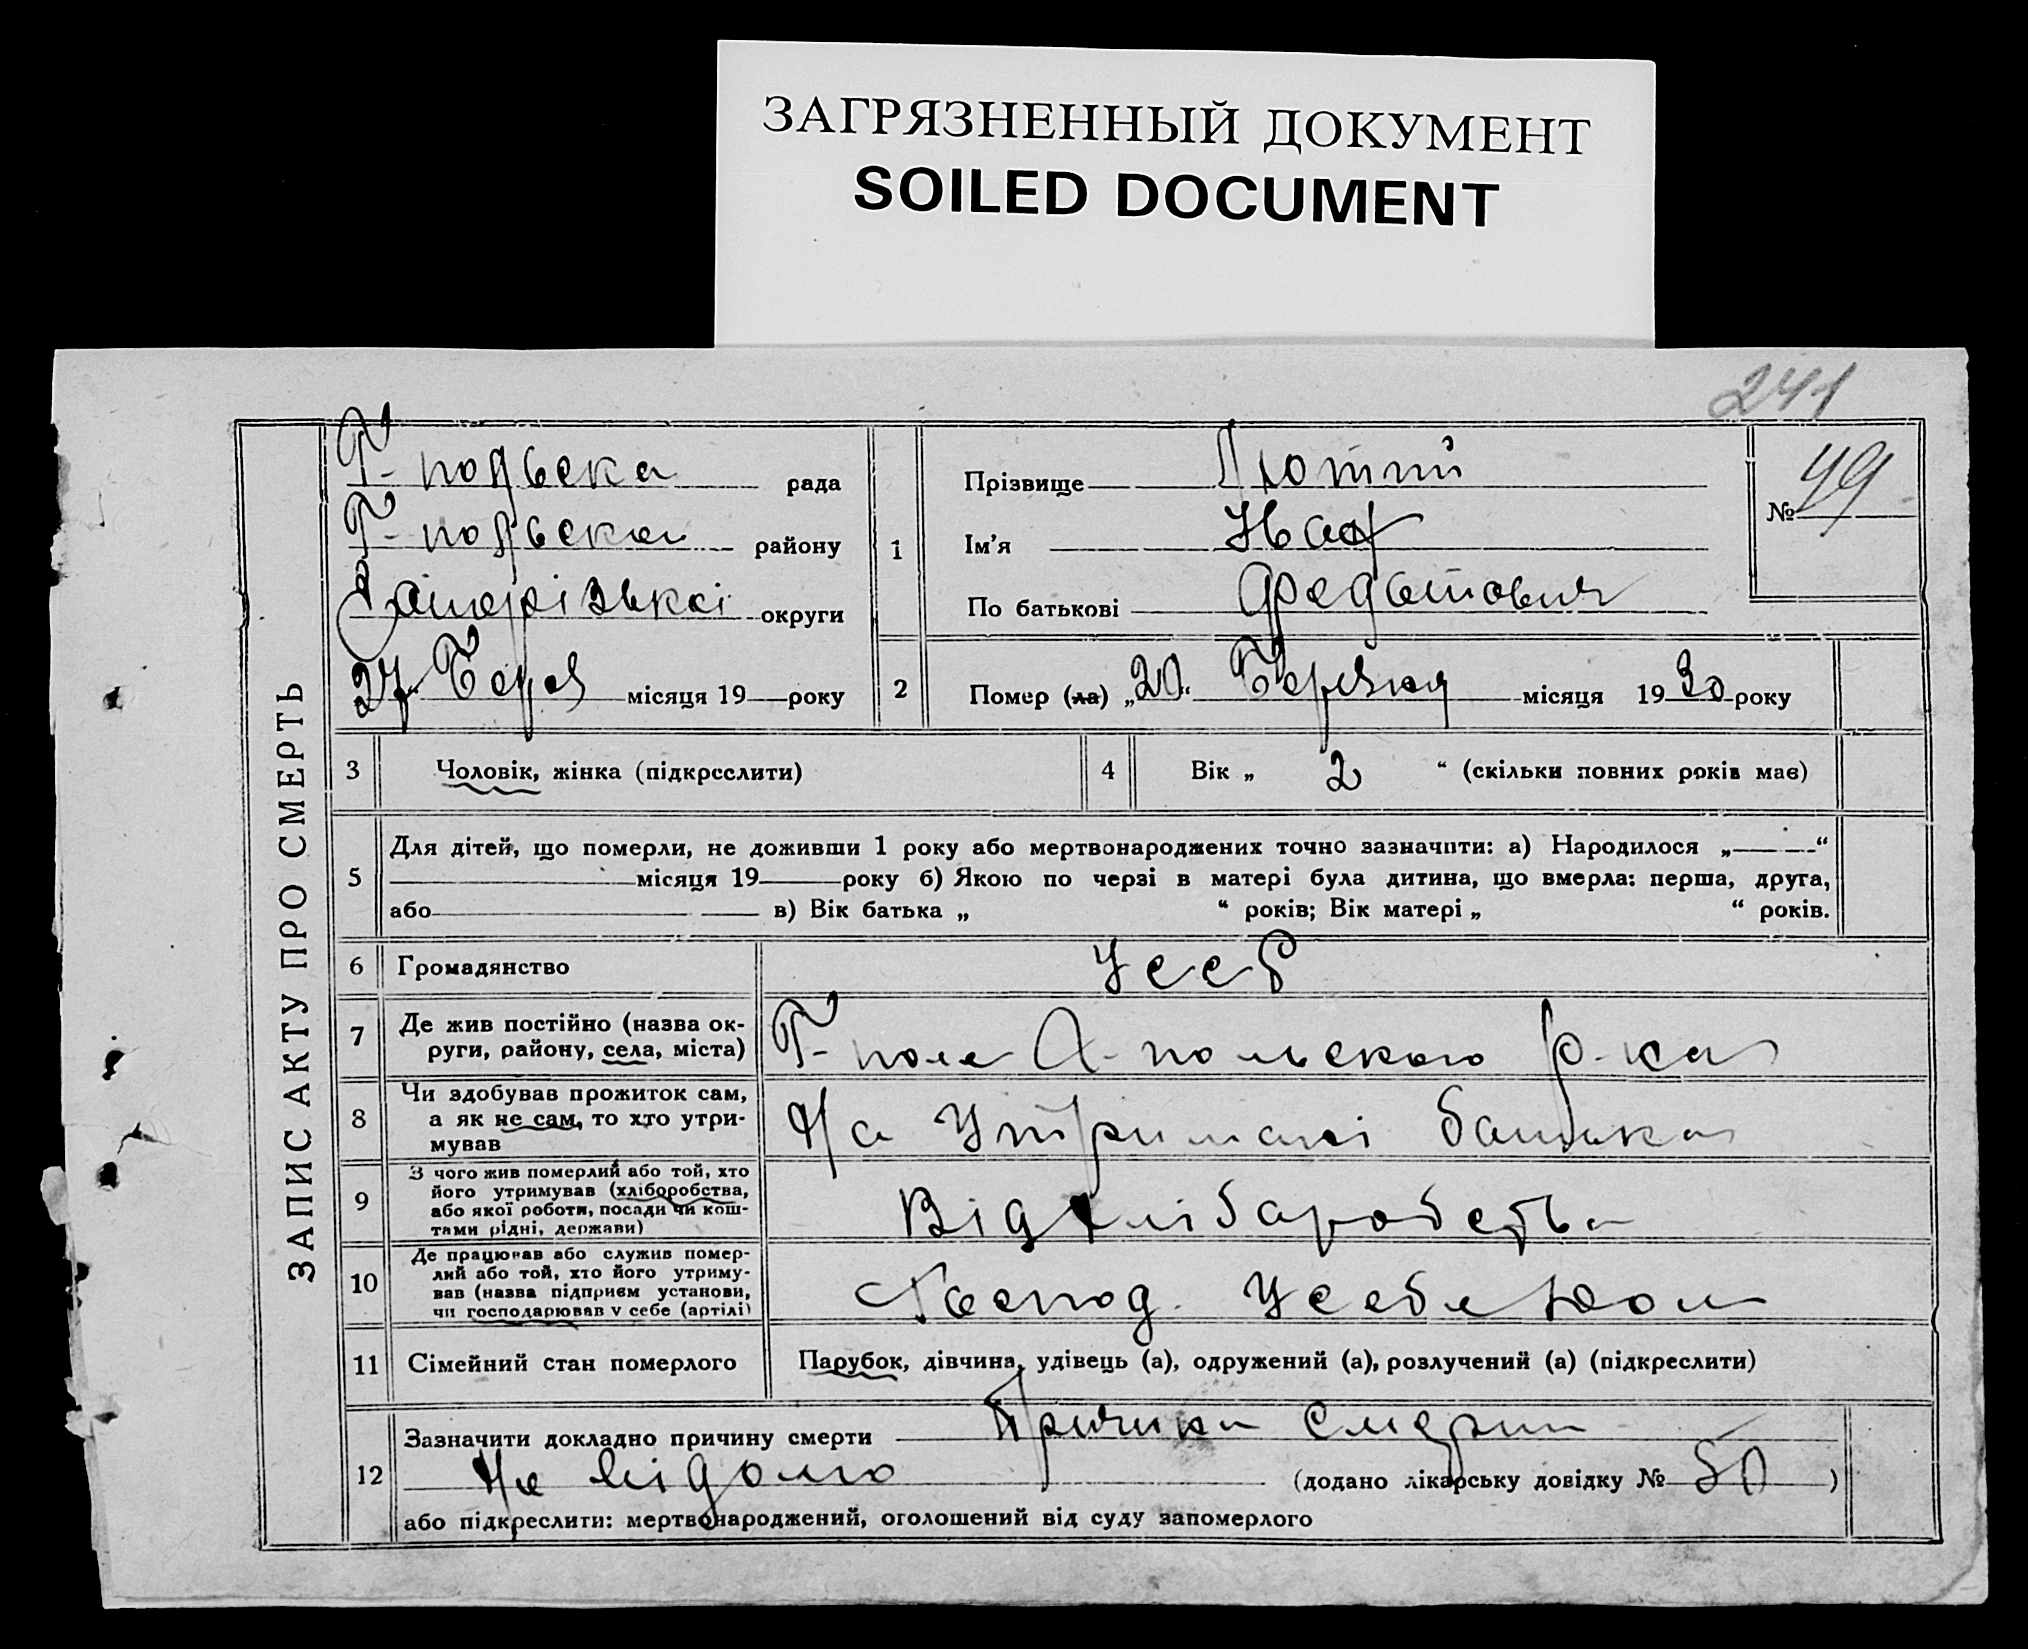 ЗАГРЯЗНЕННЫЙ ДОКУМЕНТ
SOILED DOCUMENT
241
ЗАПИС АКТУ ПРО СМЕРТЬ
Г-польска рада
Г-польска району
Запорізької округи
27 Берез місяця 19 року
1
Прізвище Лютий
Ім'я Иван
По батькові
№ 49
2
Помер (ла) „20“ Березня місяця 1930 року
3
Чоловік, жінка (підкреслити)
4
Вік „ 2 “ (скільки повних років має)
5
Для дітей, що померли, не доживши 1 року або мертвонароджених точно зазначити: а) Народилося „ “
місяця 19 року б) Якою по черзі в матері була дитина, що вмерла: перша, друга,
або в) Вік батька „ “ років; Вік матері „ “ років.
6
Громадянство
УССР
7
Де жив постійно (назва ок-
руги, району, села, міста)
Г-поле Г-польского р-на
8
Чи здобував прожиток сам,
а як не сам, то хто утри-
мував
На Утримані батька
9
З чого жив померлий або той, хто
його утримував (хліборобства,
або якої роботи, посади чи кош-
тами рідні, держави)
Від хліборобства
10
Де працював або служив помер-
лий або той, хто його утриму-
вав (назва підприєм установи,
чи господарював у себе (артілі)
Господ. У себе
11
Сімейний стан померлого
Парубок, дівчина, удівець (а), одружений (а), розлучений (а) (підкреслити)
12
Зазначити докладно причину смерти Причина смерти
Не відомо (додано лікарську довідку № 50 )
або підкреслити: мертвонароджений, оголошений від суду запомерлого